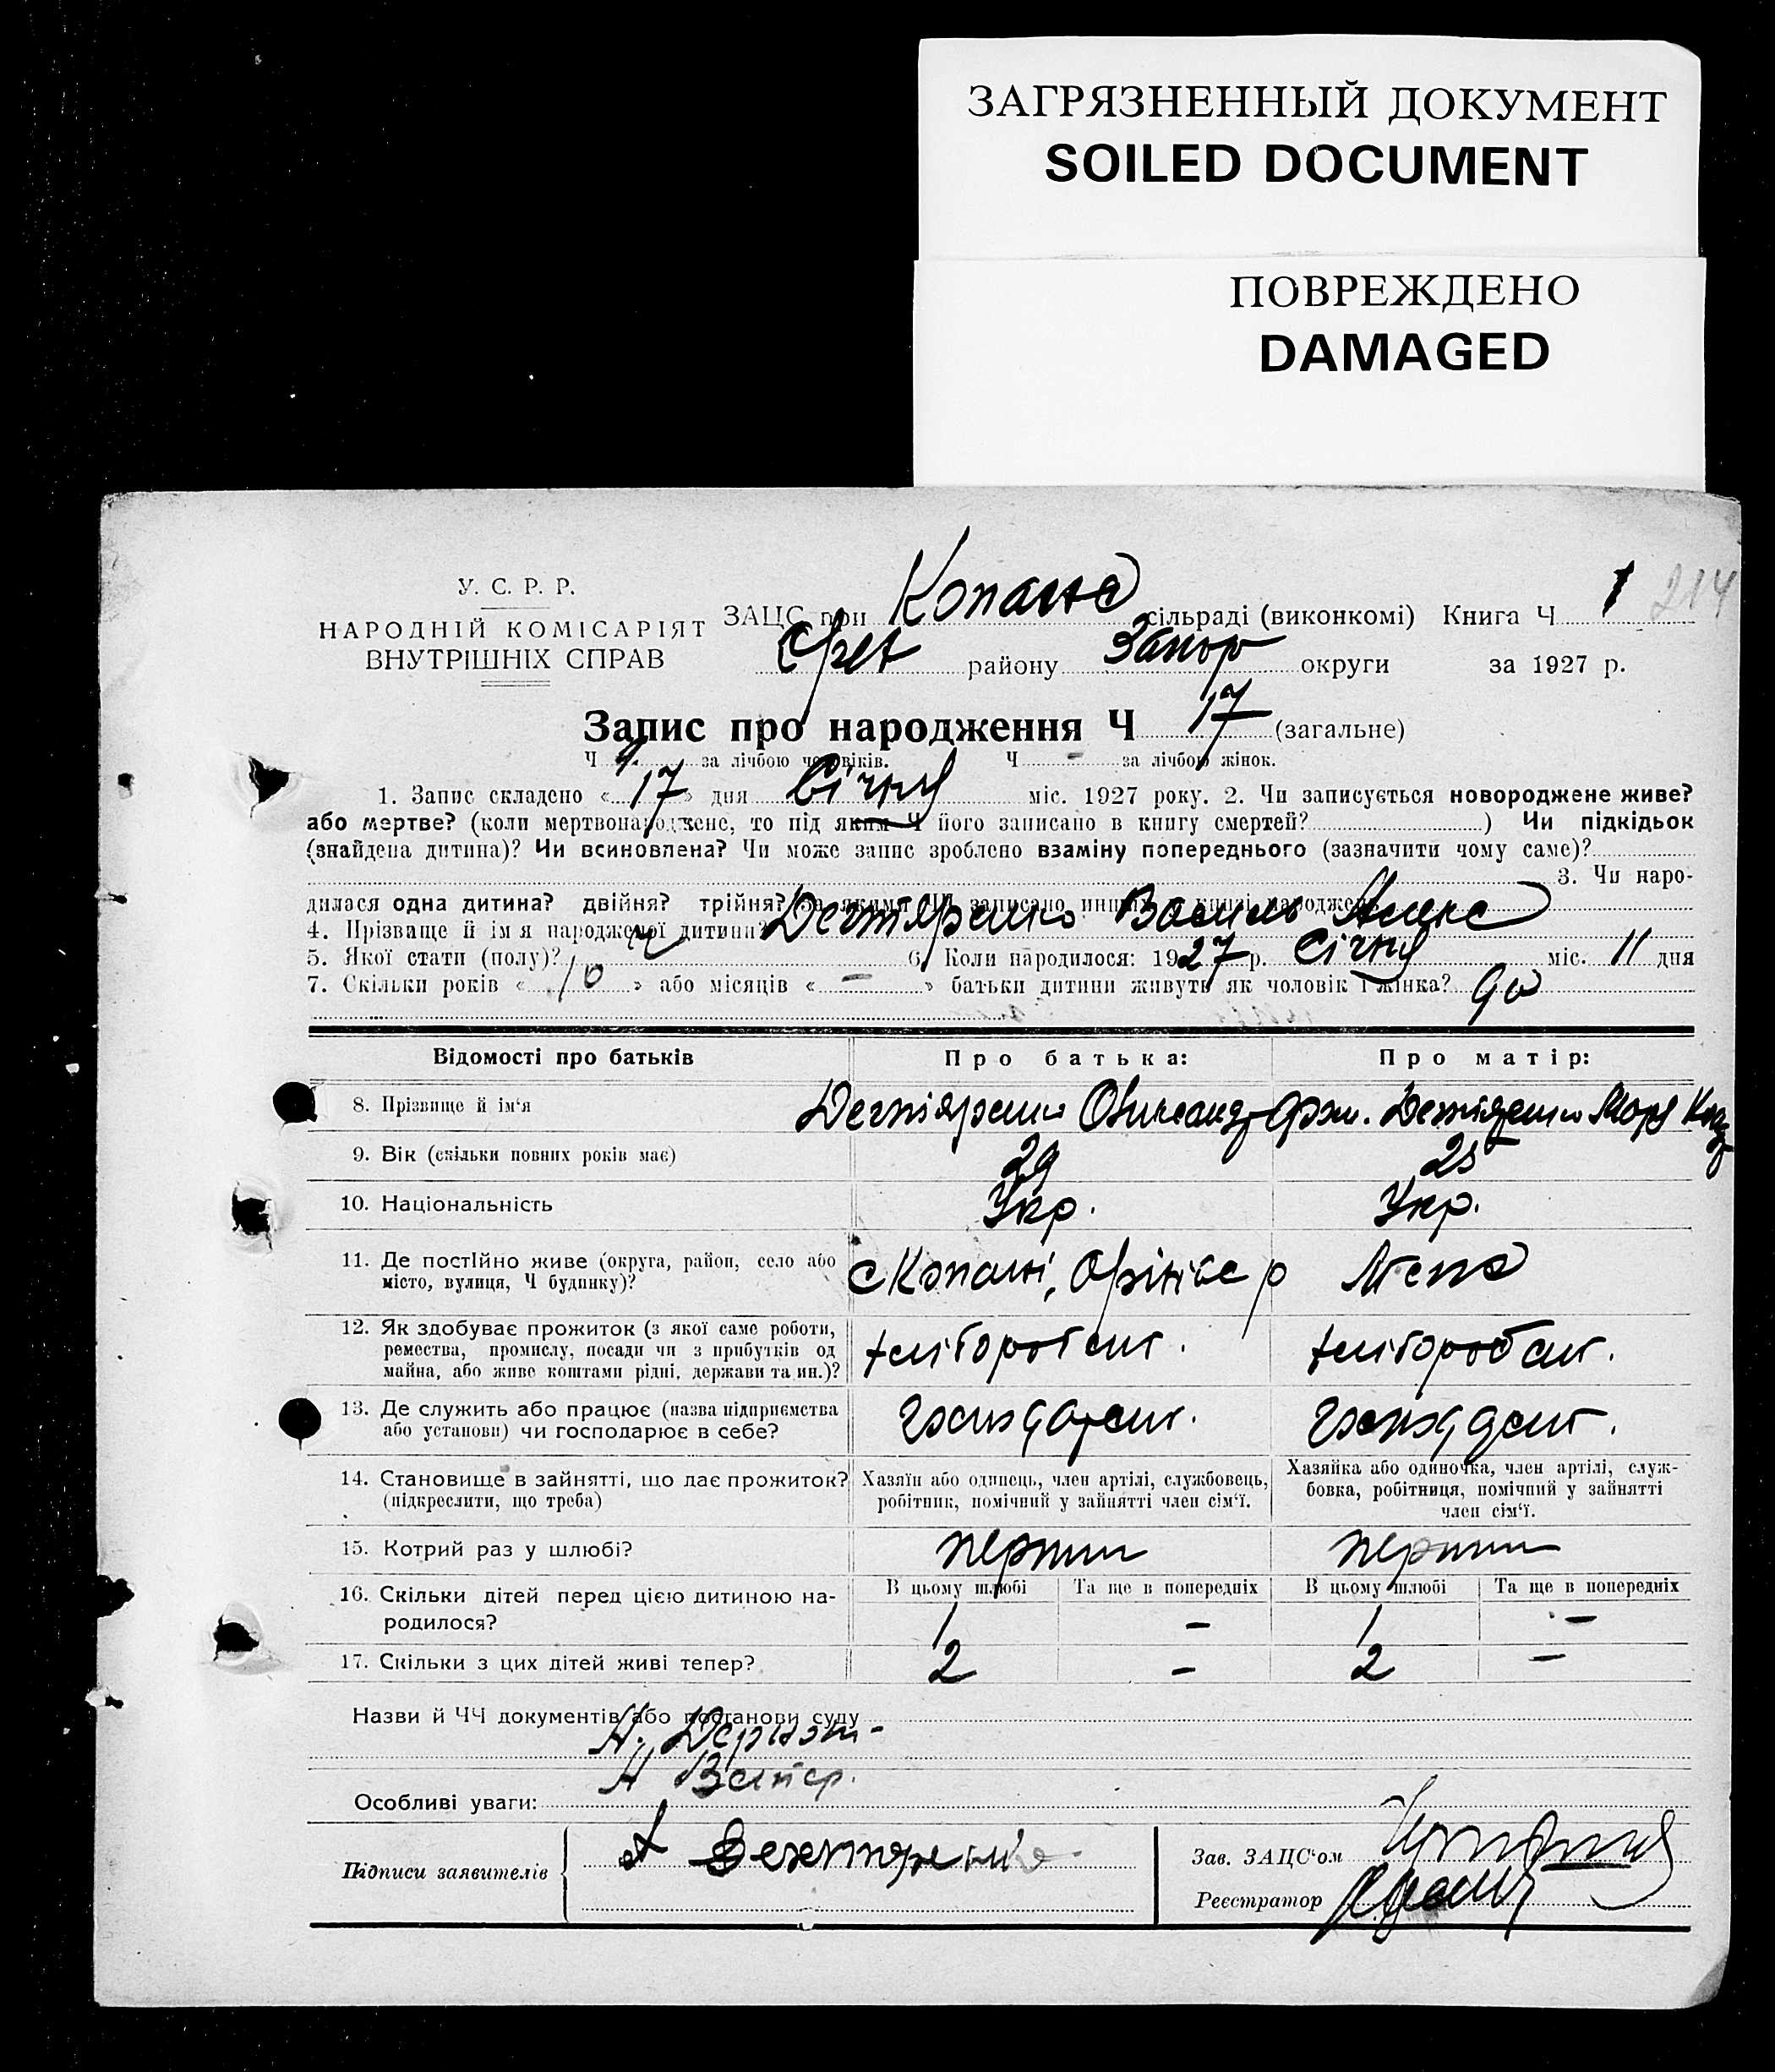 ЗАГРЯЗНЕННЫЙ ДОКУМЕНТ
SOILED DOCUMENT
ПОВРЕЖДЕНО
DAMAGED
У. С. Р. Р.
НАРОДНІЙ КОМІСАРІЯТ
ВНУТРІШНІХ СПРАВ
ЗАЦС при сільраді (виконкомі) Книга Ч 1 214
району Запор округи за 1927 р.
Запис про народження Ч 17 (загальне)
Ч за лічбою чоловіків. Ч - за лічбою жінок.
1. Запис складено «17» дня Січня міс. 1927 року. 2. Чи записується новороджене живе?
або мертве? (коли мертвонароджене, то під яким Ч його записано в книгу смертей?) Чи підкідьок
(знайдена дитина)? Чи всиновлена? Чи може запис зроблено взаміну попереднього (зазначити чому саме)?
3. Чи наро-
дилася одна дитина? двійня? трійня? За якими ЧЧ записано инших в книзі народжень
4. Прізваще й ім я народженої дитини? Дегтяренко Василь Алекс
5. Якої стати (полу)? ч 6. Коли народилося: 1927 р. Січня міс. 11 дня
7. Скільки років «10» або місяців «-» батьки дитини живуть як чоловік і жінка?
Відомості про батьків Про батька: Про матір:
8. Прізвище й ім'я Дегтяренко Олександр
9. Вік (скільки повних років має) 29 25
10. Національність Укр. Укр.
11. Де постійно живе (округа, район, село або
місто, вулиця, Ч будинку)? с Копані, Оріхівс р
12. Як здобуває прожиток (з якої саме роботи,
ремества, промислу, посади чи з прибутків од
майна, або живе коштами рідні, держави та ин.)? хлібороб хлібороб
13. Де служить або працює (назва підприємства
або установи) чи господарює в себе?
14. Становище в зайнятті, що дає прожиток?
(підкреслити, що треба)
Хазяїн або одинець, член артілі, службовець,
робітник, помічний у зайнятті член сім'ї.
Хазяйка або одиночка, член артілі, служ-
бовка, робітниця, помічний у зайнятті
член сім'ї.
15. Котрий раз у шлюбі? перший перший
В цьому шлюбі Та ще в попередніх В цьому шлюбі Та ще в попередніх
16. Скільки дітей перед цією дитиною на-
родилося? 1 - 1 -
17. Скільки з цих дітей живі тепер? 2 - 2 -
Назви й ЧЧ документів або постанови суду
Особливі уваги:
Підписи заявителів
Зав. ЗАЦС'ом
Реєстратор